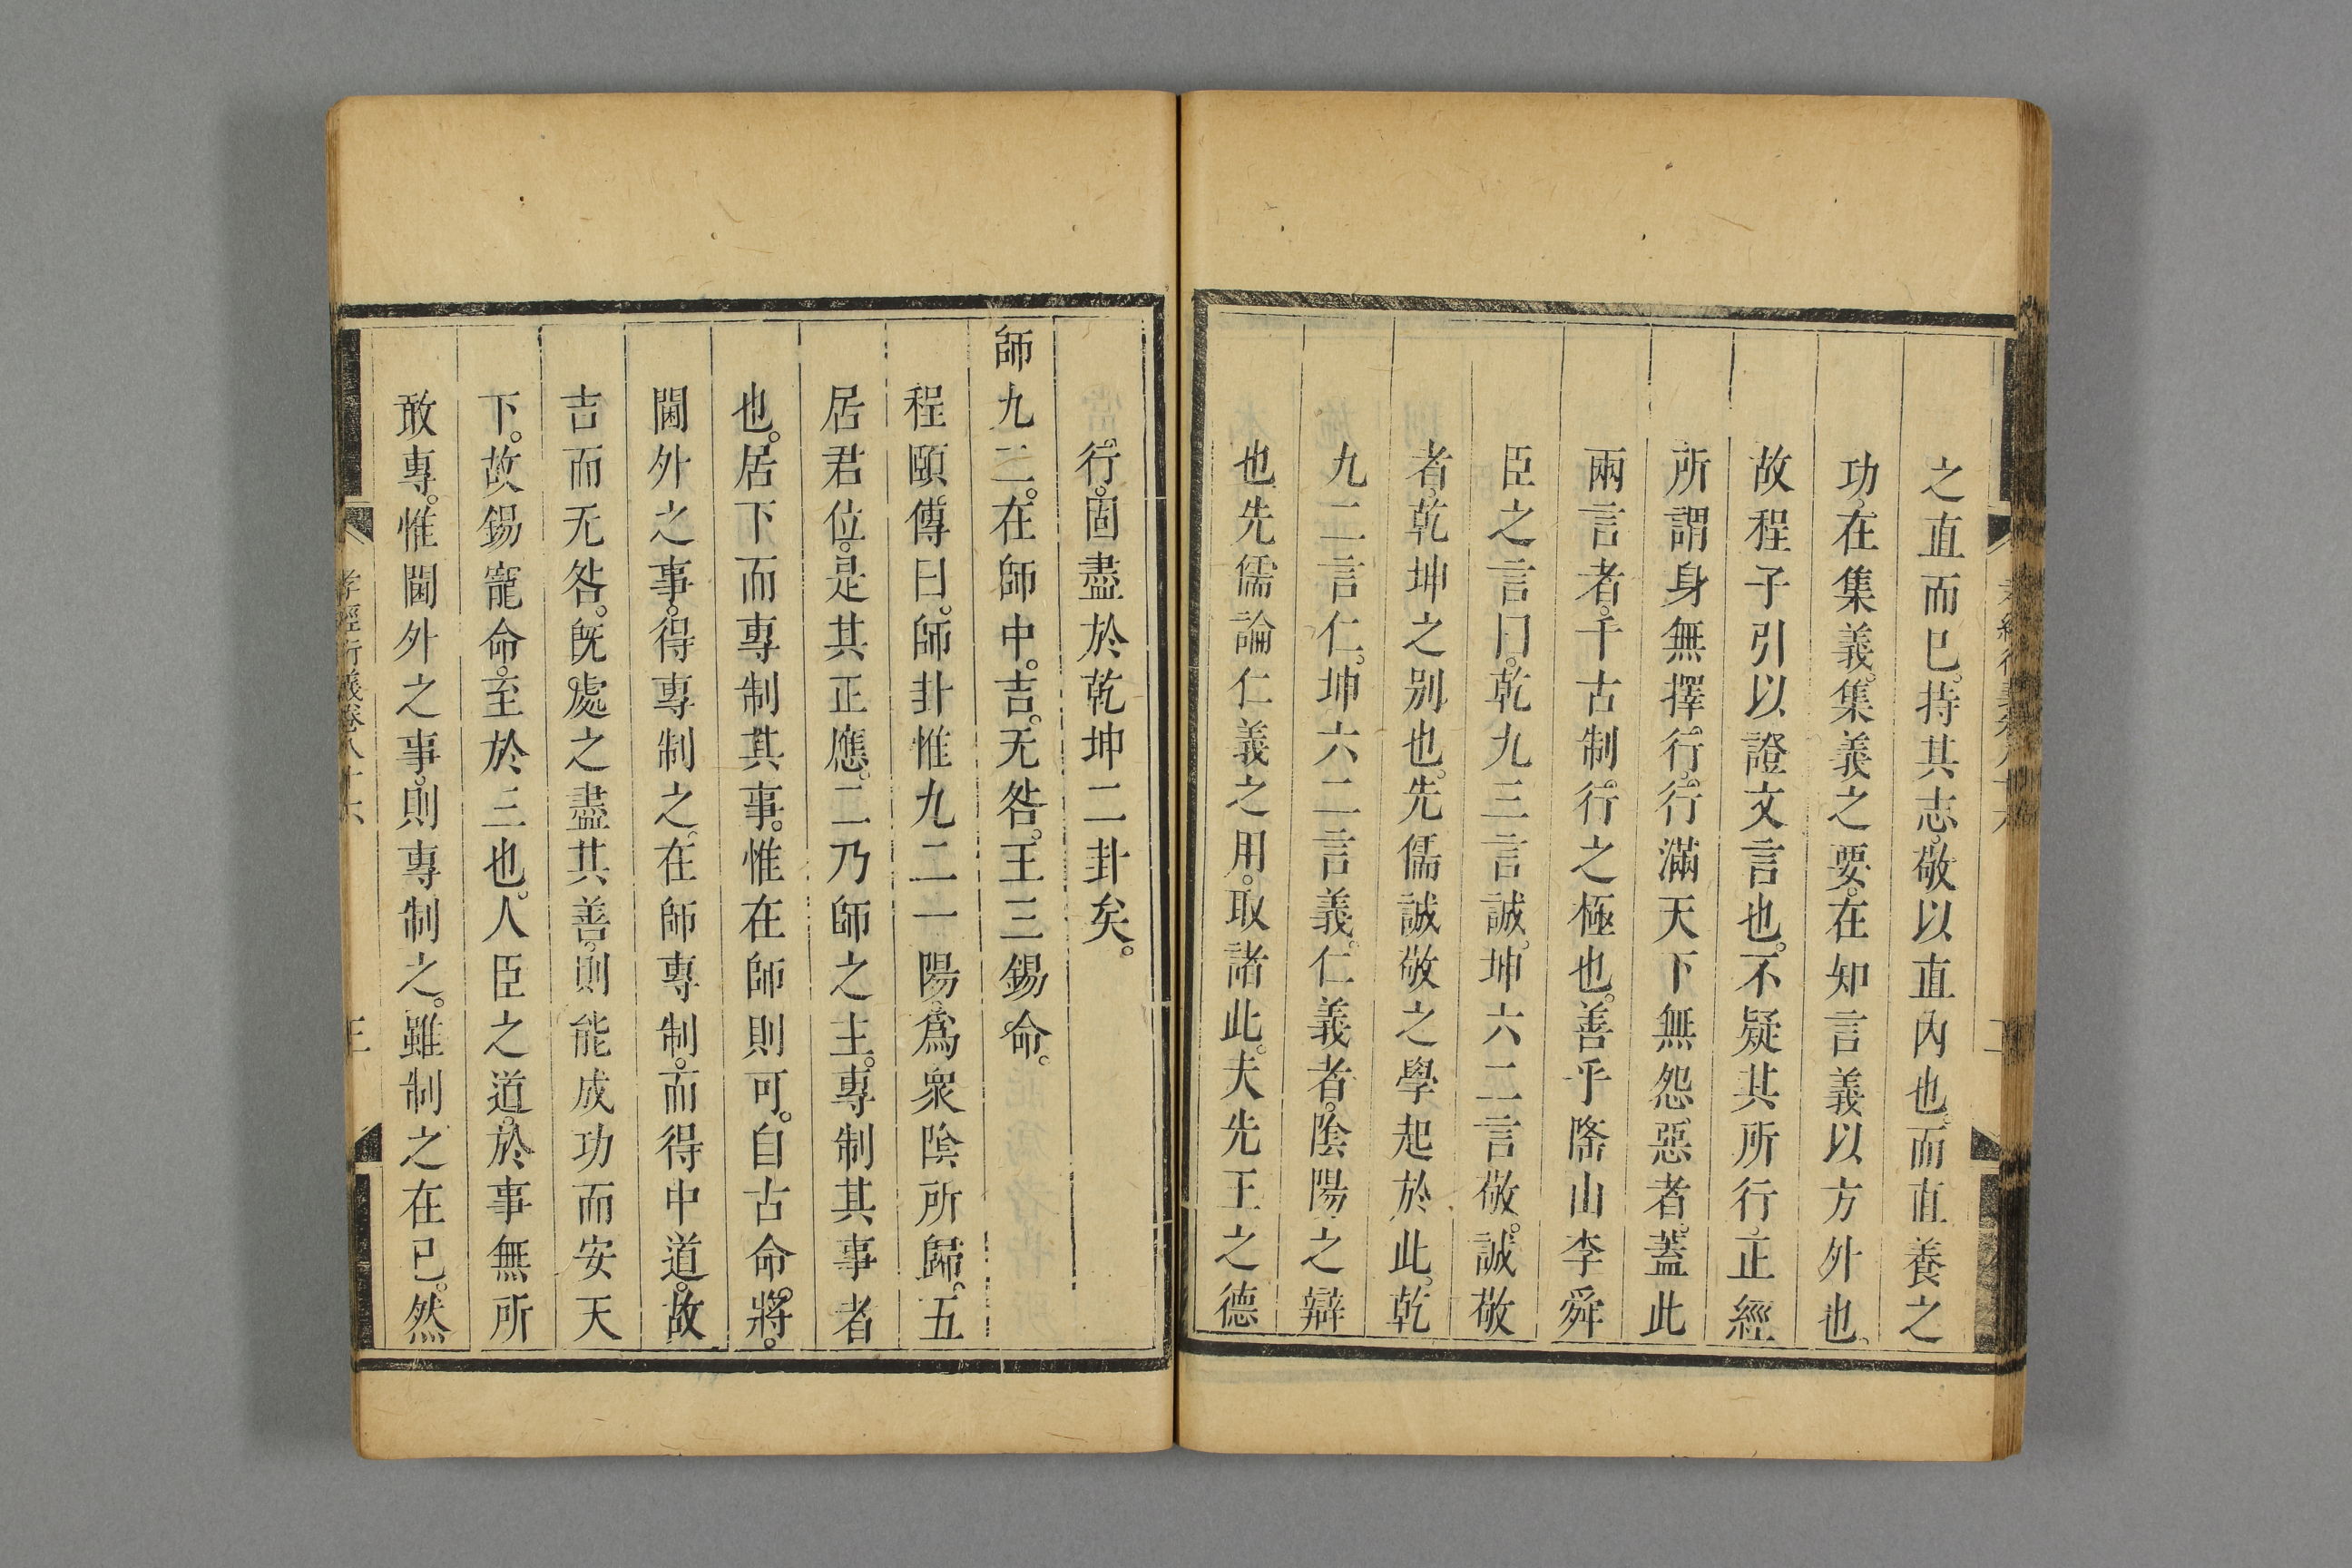 之直而已。持其志。敬以直內也。而直養之
功。在集義。集義之要。在知言義以方外也。
故程子引以證文言也。不疑其所行。正經
所謂身無擇行。行滿天下無怨惡者。蓋此
兩言者。千古制行之極也。善乎隆山李舜
臣之言曰。乾九三言誠。坤六二言敬。誠敬
者。乾坤之別也。先儒誠敬之學起於此。乾
九二言仁。坤六二言義。仁義者。陰陽之辯
也先儒論仁義之用。取諸此。夫先王之德
行。固盡於乾坤二卦矣。
師九二。在師中。吉。无咎。王三錫命。
程頤傳曰。師卦惟九二一陽。爲衆陰所歸。五
居君位。是其正應。二乃師之主。專制其事者
也。居下而專制其事。惟在師則可。自古命將。
閫外之事。得專制之。在師專制。而得中道。故
吉而无咎。旣處之盡其善。則能成功而安天
下。故錫寵命。至於三也。人臣之道。於事無所
敢專。惟閫外之事。則專制之。雖制之在已。然
孝經衍義卷八十六